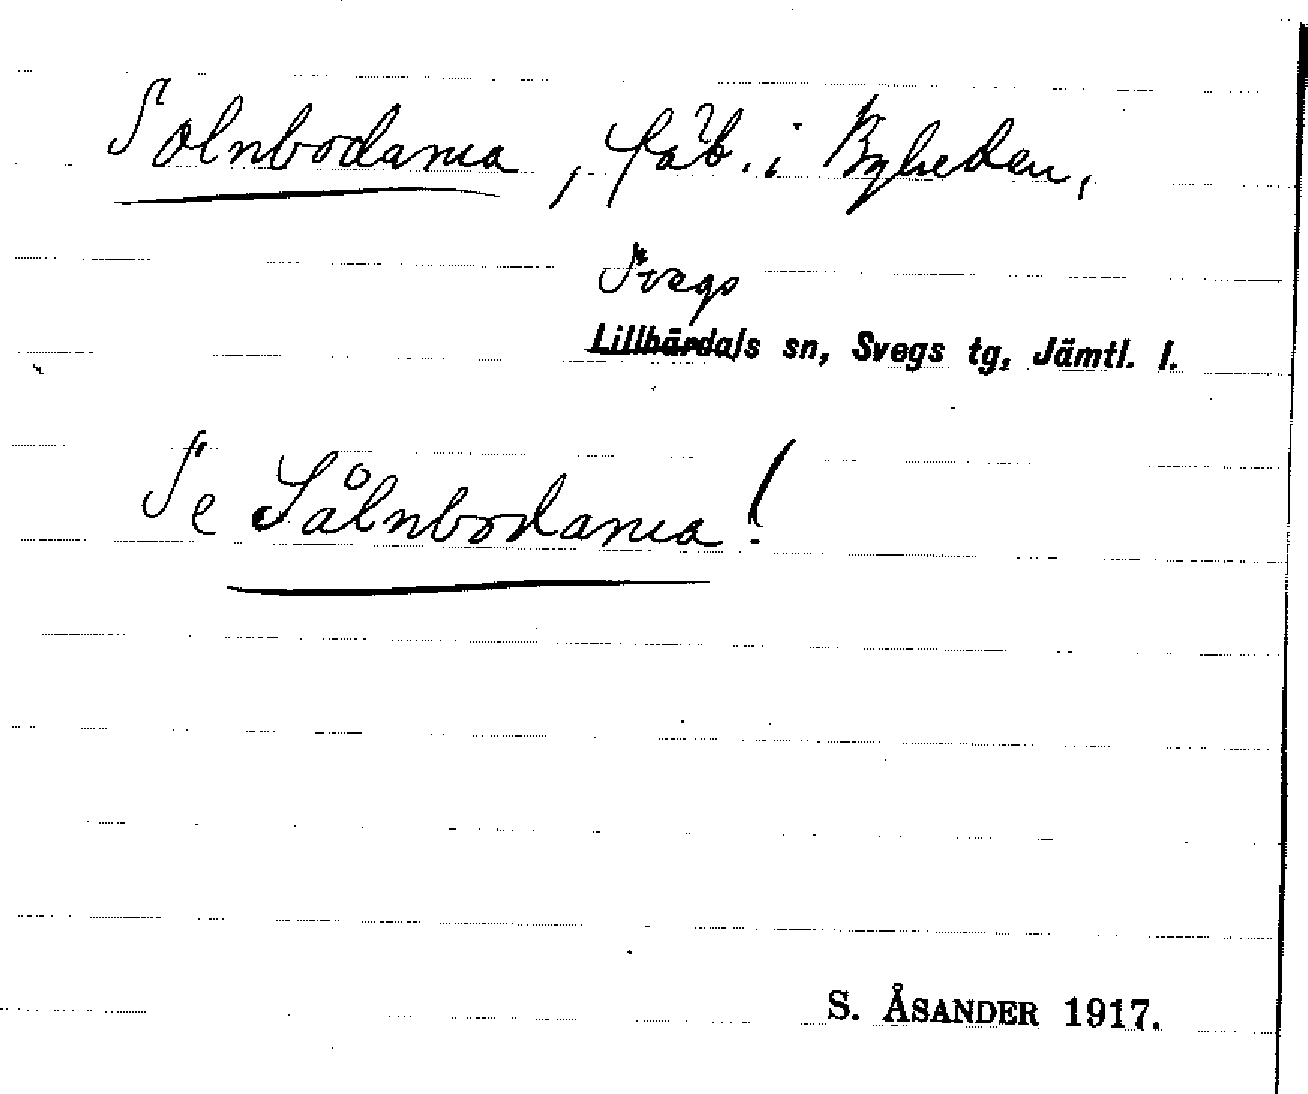 Solnbodarna, fäb. i Byheden,
Svegs
Lillhärdals sn, Svegs tg, Jämtl. l.
Se Sålnbodarna!
S. ÅSANDER 1917.